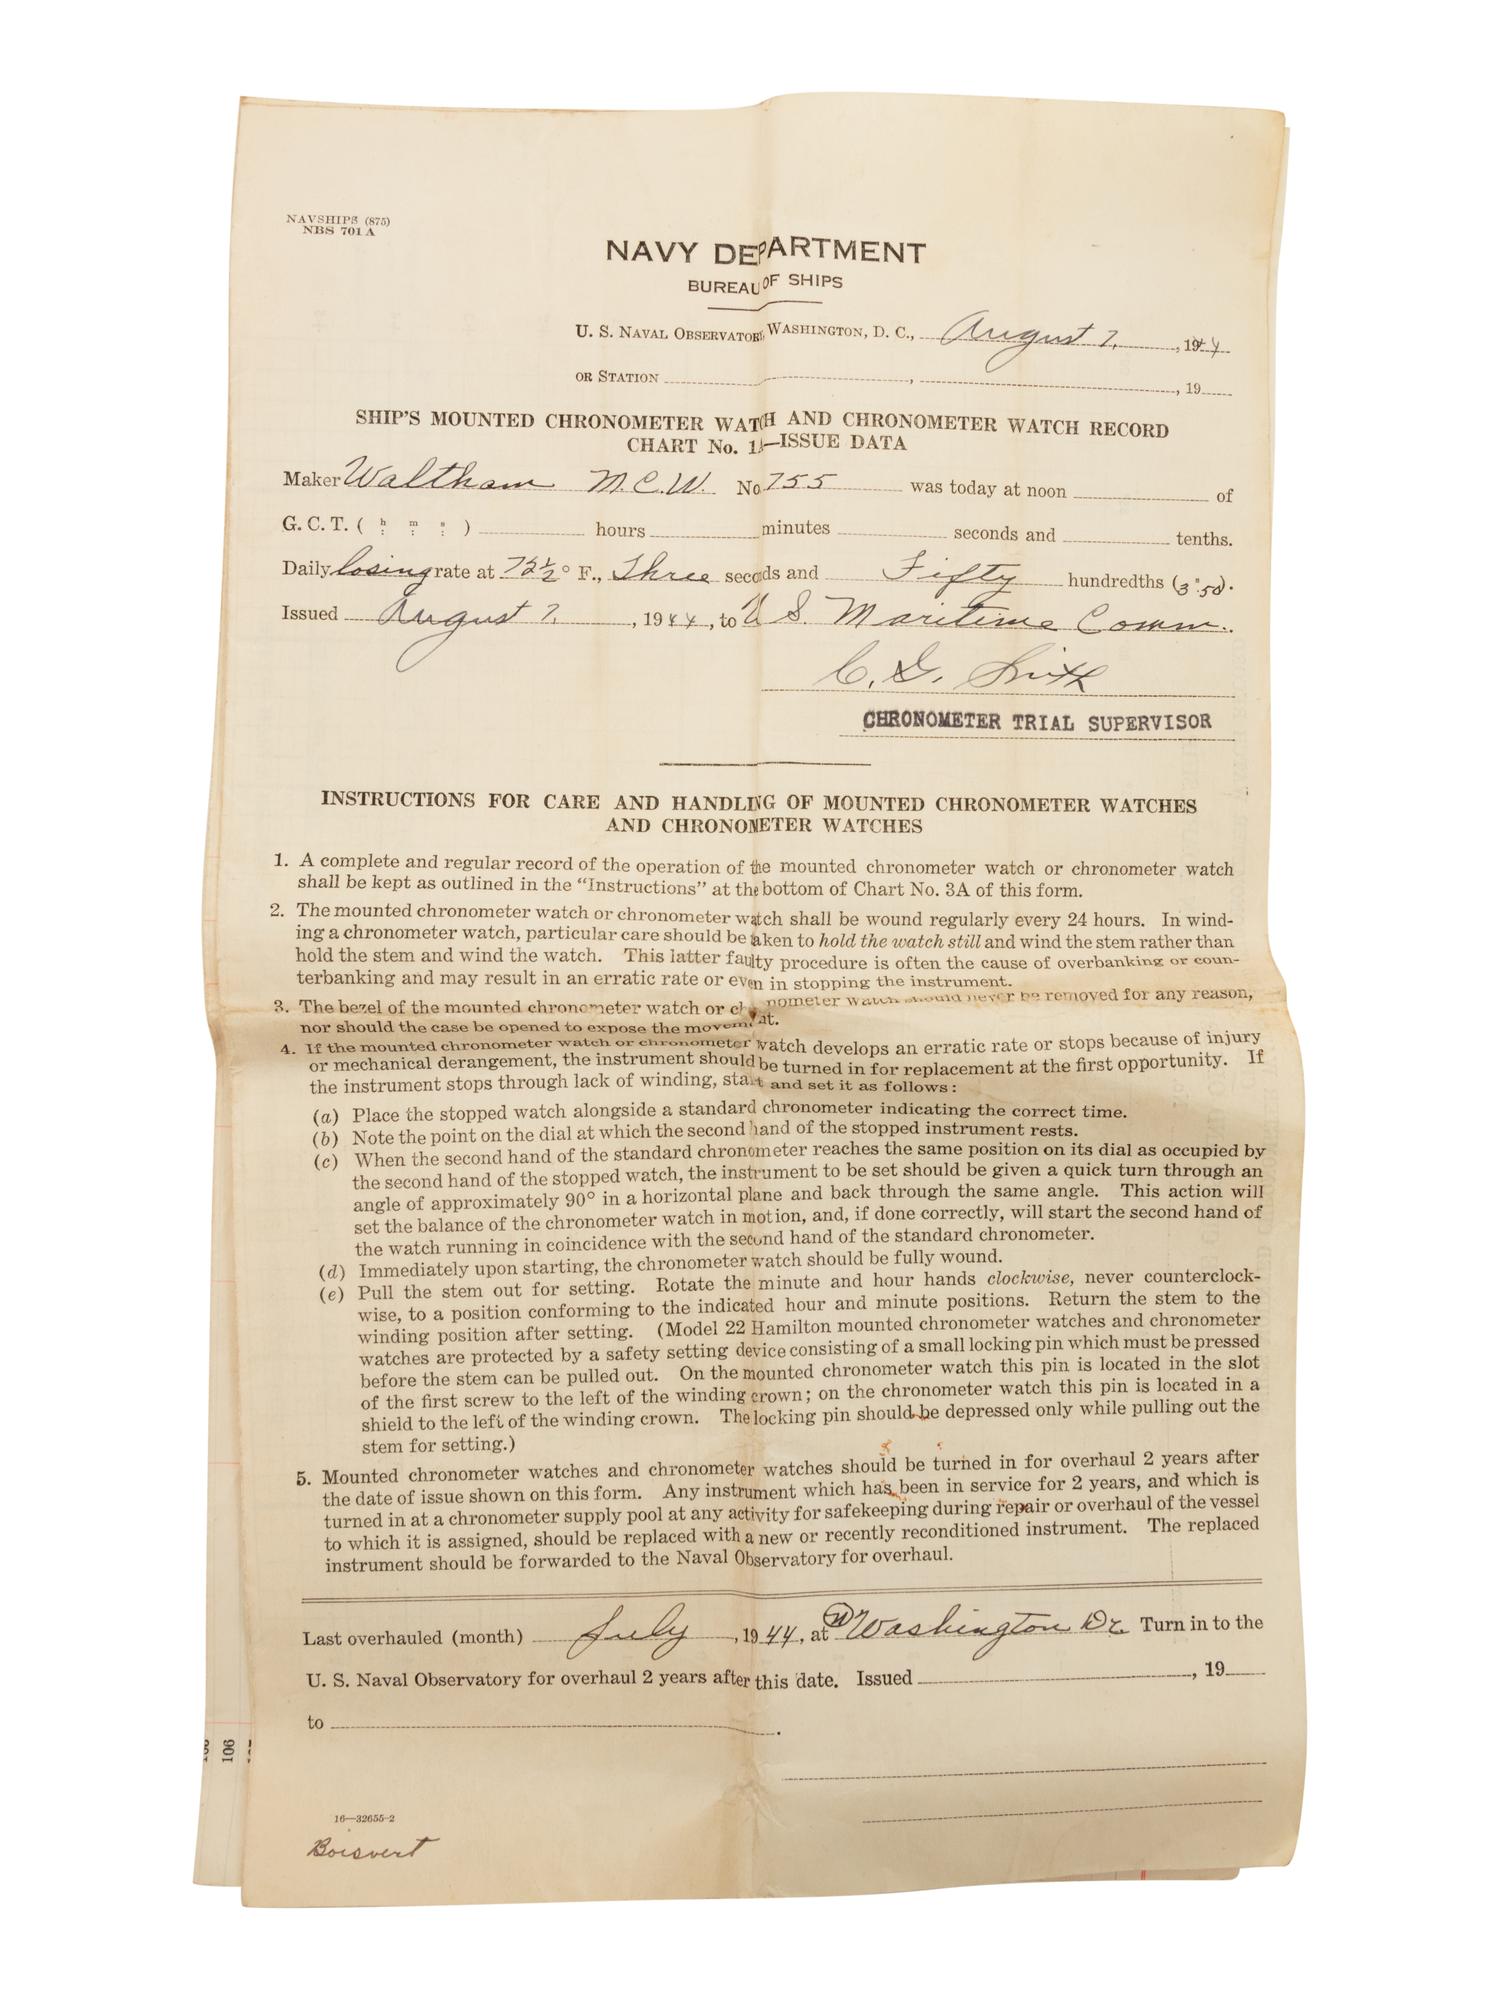 NAVSHIPS (875)
NBS 701A
NAVY DEPARTMENT
BUREAU OF SHIPS
U. S. NAVAL OBSERVATORY, WASHINGTON, D. C., August 7, 1944
OR STATION , , 19
SHIP'S MOUNTED CHRONOMETER WATCH AND CHRONOMETER WATCH RECORD
CHART No. 1A—ISSUE DATA
Maker Waltham M.C.W. No 755 was today at noon of
G. C. T. ( h : m : s : ) hours minutes seconds and tenths.
Daily losing rate at 72½° F., Three seconds and Fifty hundredths (3ˢ.50).
Issued August 7, 1944, to U S. Maritime Comm.
C. G. Smith
CHRONOMETER TRIAL SUPERVISOR
INSTRUCTIONS FOR CARE AND HANDLING OF MOUNTED CHRONOMETER WATCHES
AND CHRONOMETER WATCHES
1. A complete and regular record of the operation of the mounted chronometer watch or chronometer watch
shall be kept as outlined in the "Instructions" at the bottom of Chart No. 3A of this form.
2. The mounted chronometer watch or chronometer watch shall be wound regularly every 24 hours. In wind-
ing a chronometer watch, particular care should be taken to hold the watch still and wind the stem rather than
hold the stem and wind the watch. This latter faulty procedure is often the cause of overbanking or coun-
terbanking and may result in an erratic rate or even in stopping the instrument.
3. The bezel of the mounted chronometer watch or chronometer watch should never be removed for any reason,
nor should the case be opened to expose the movement.
4. If the mounted chronometer watch or chronometer watch develops an erratic rate or stops because of injury
or mechanical derangement, the instrument should be turned in for replacement at the first opportunity. If
the instrument stops through lack of winding, start and set it as follows:
(a) Place the stopped watch alongside a standard chronometer indicating the correct time.
(b) Note the point on the dial at which the second hand of the stopped instrument rests.
(c) When the second hand of the standard chronometer reaches the same position on its dial as occupied by
the second hand of the stopped watch, the instrument to be set should be given a quick turn through an
angle of approximately 90° in a horizontal plane and back through the same angle. This action will
set the balance of the chronometer watch in motion, and, if done correctly, will start the second hand of
the watch running in coincidence with the second hand of the standard chronometer.
(d) Immediately upon starting, the chronometer watch should be fully wound.
(e) Pull the stem out for setting. Rotate the minute and hour hands clockwise, never counterclock-
wise, to a position conforming to the indicated hour and minute positions. Return the stem to the
winding position after setting. (Model 22 Hamilton mounted chronometer watches and chronometer
watches are protected by a safety setting device consisting of a small locking pin which must be pressed
before the stem can be pulled out. On the mounted chronometer watch this pin is located in the slot
of the first screw to the left of the winding crown; on the chronometer watch this pin is located in a
shield to the left of the winding crown. The locking pin should be depressed only while pulling out the
stem for setting.)
5. Mounted chronometer watches and chronometer watches should be turned in for overhaul 2 years after
the date of issue shown on this form. Any instrument which has been in service for 2 years, and which is
turned in at a chronometer supply pool at any activity for safekeeping during repair or overhaul of the vessel
to which it is assigned, should be replaced with a new or recently reconditioned instrument. The replaced
instrument should be forwarded to the Naval Observatory for overhaul.
Last overhauled (month) July, 1944, at Washington Dc. Turn in to the
U. S. Naval Observatory for overhaul 2 years after this date. Issued , 19
to .
106
16—32655-2
Boisvert